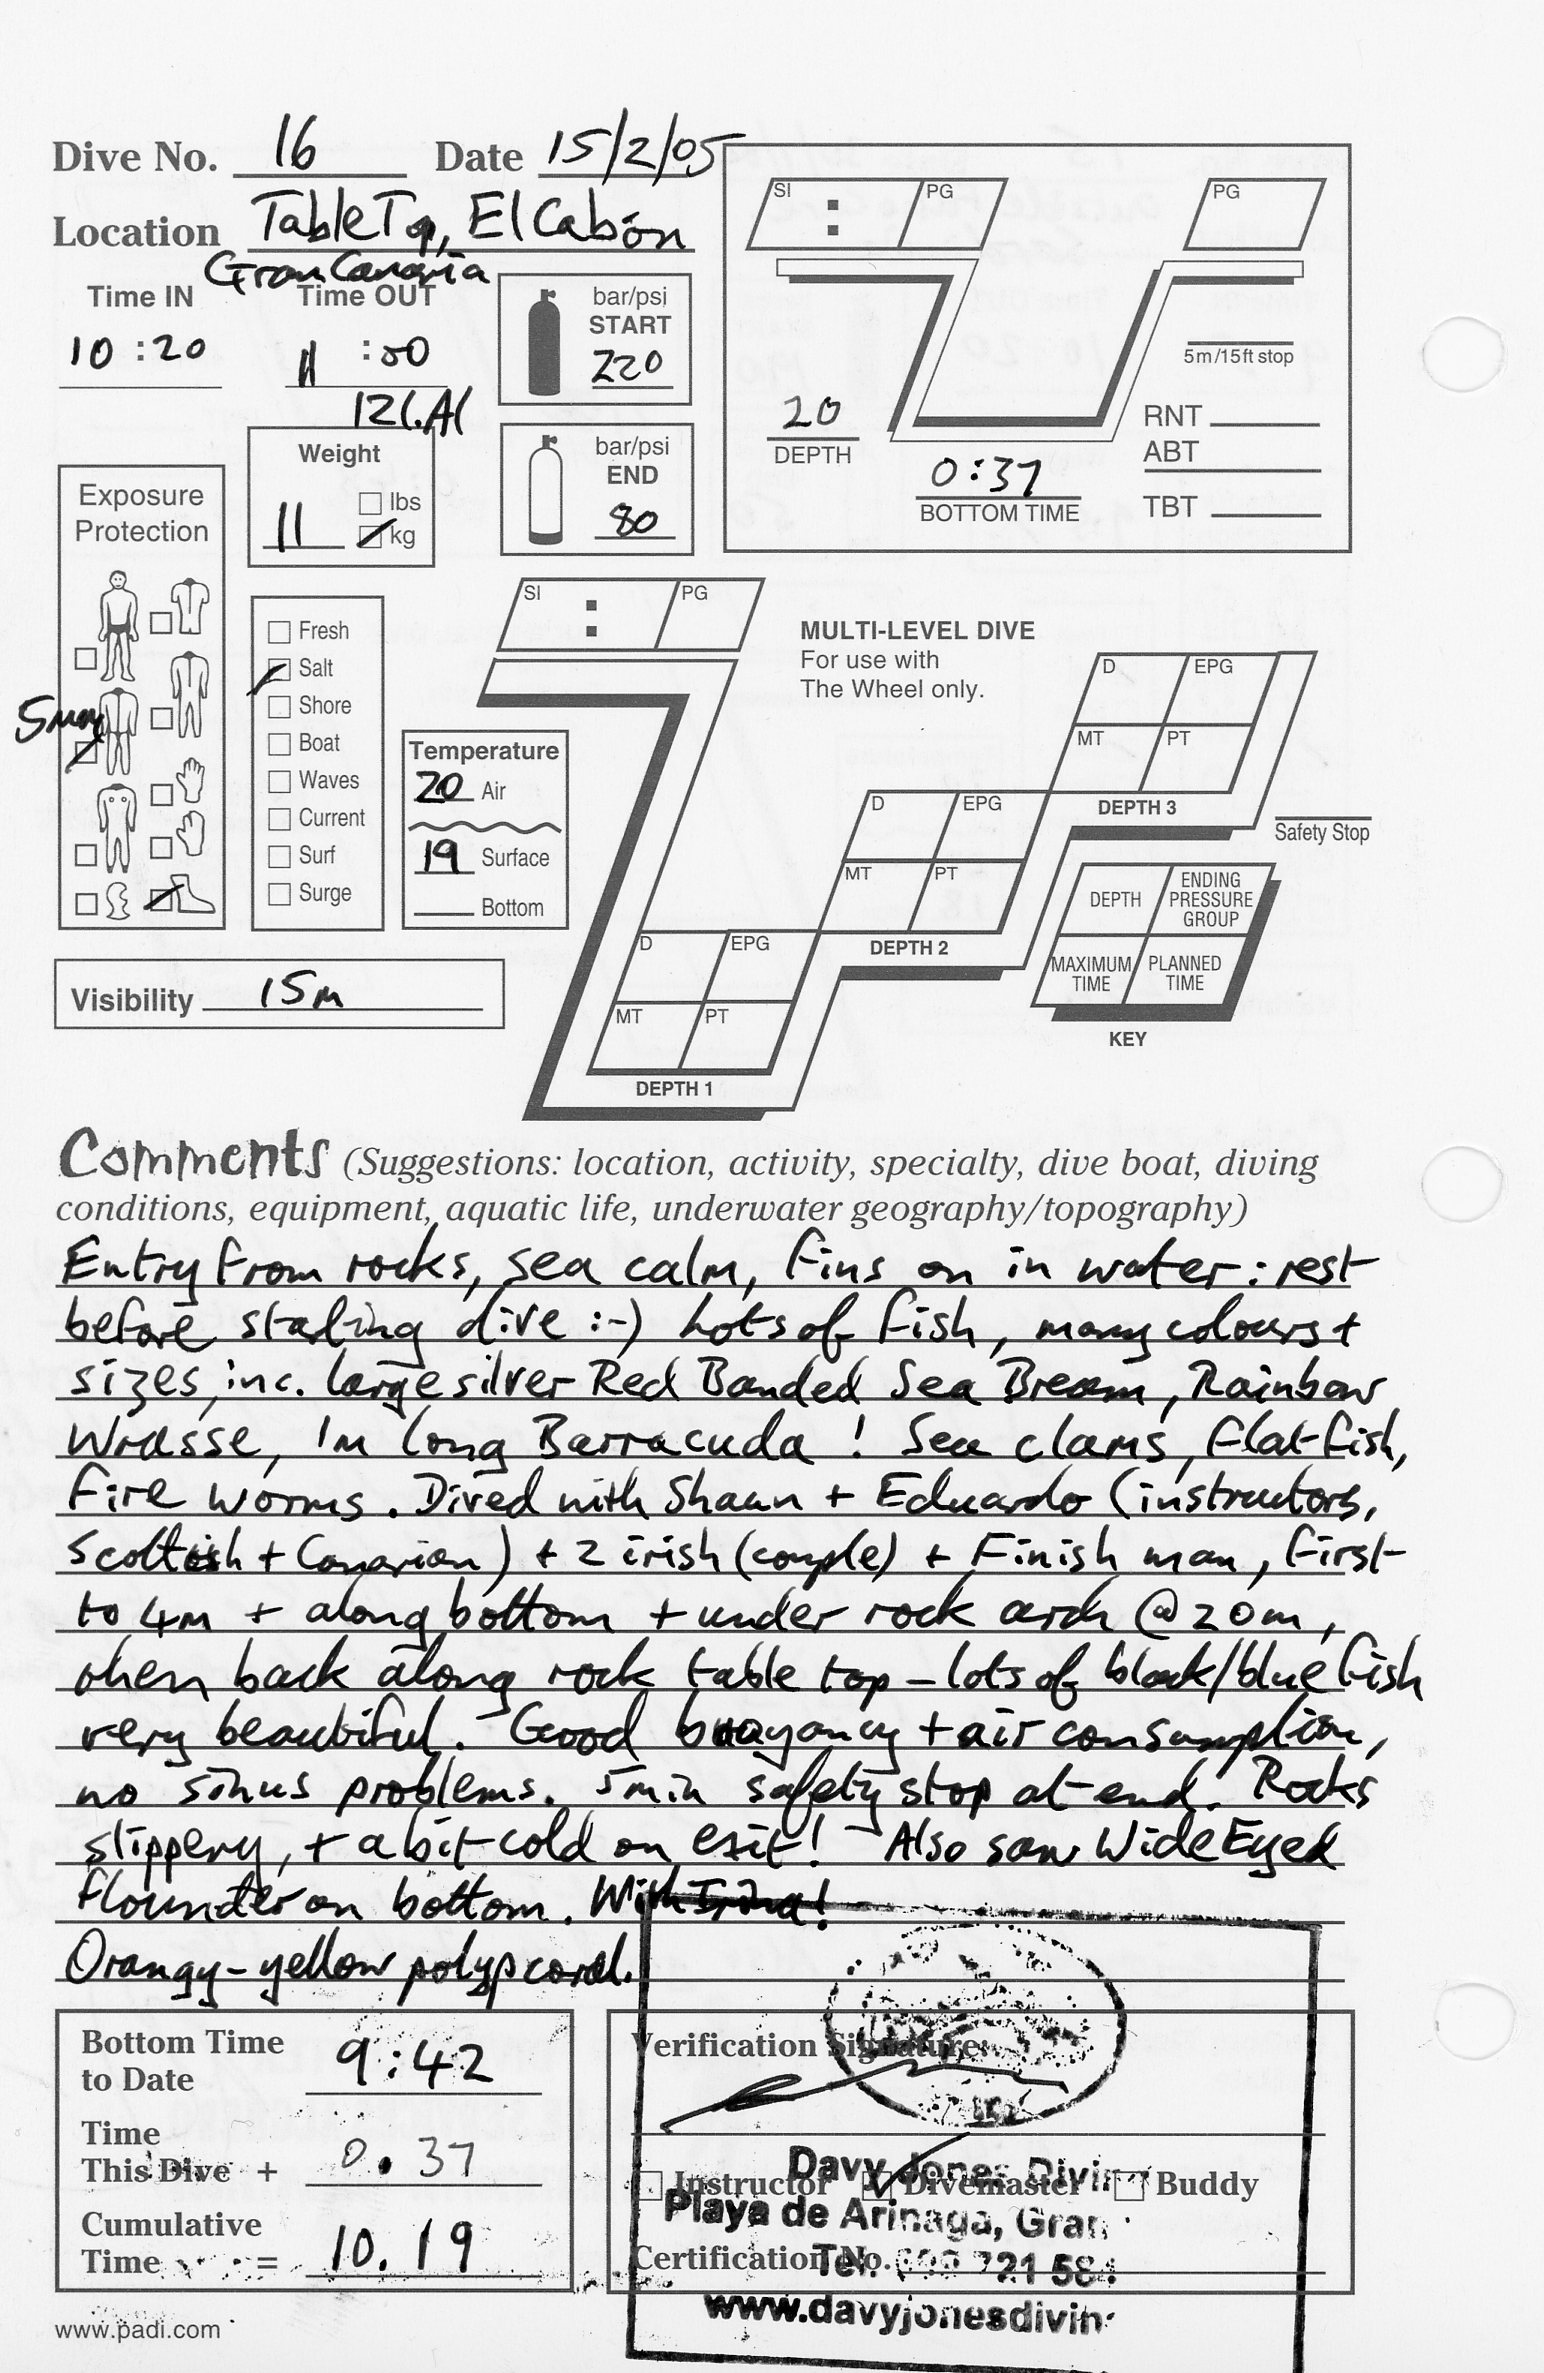 Dive No. 16 Date 15/2/05
Location Table Top, El Cabón
Gran Canaria
Time IN Time OUT
10 : 20 11 : 00
12l. Al
bar/psi
START
220
bar/psi
END
80
Weight
11
lbs
kg
Exposure
Protection
5mm
Fresh
Salt
Shore
Boat
Waves
Current
Surf
Surge
Temperature
20 Air
19 Surface
Bottom
Visibility 15m
SI : PG
PG
5m/15ft stop
20
DEPTH
0:37
BOTTOM TIME
RNT
ABT
TBT
SI : PG
MULTI-LEVEL DIVE
For use with
The Wheel only.
D EPG
MT PT
DEPTH 3
D EPG
MT PT
DEPTH 2
D EPG
MT PT
DEPTH 1
Safety Stop
DEPTH
ENDING
PRESSURE
GROUP
MAXIMUM
TIME
PLANNED
TIME
KEY
Comments (Suggestions: location, activity, specialty, dive boat, diving
conditions, equipment, aquatic life, underwater geography/topography)
Entry from rocks, sea calm, fins on in water: rest
before starting dive :-) Lots of fish, many colours +
sizes, inc. large silver Red Banded Sea Bream, Rainbow
Wrasse, 1m long Barracuda! Sea clams, flat-fish,
fire worms. Dived with Shaun + Eduardo (instructors,
Scottish + Canarian) + 2 irish (couple) + Finish man, first
to 4m + along bottom + under rock arch @ 20m,
then back along rock table top – lots of black/blue fish
very beautiful. Good buoyancy + air consumption,
no sinus problems. 5min safety stop at end. Rocks
slippery, + a bit cold on exit! Also saw Wide Eyed
Flounder on bottom. With !
Orangy-yellow polyp coral.
Bottom Time
to Date 9:42
Time
This Dive + 0.37
Cumulative
Time = 10.19
Verification Signature:
Instructor Divemaster Buddy
Certification No.
Davy Jones Divin
Playa de Arinaga, Gran
Tel: 721 58
www.davyjonesdivin
www.padi.com